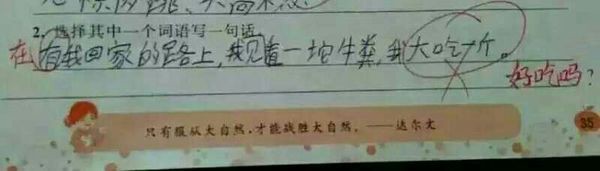 2.选择其中一个词语写一句话
在有我回家的路上,我见着一坨牛粪,我大吃一斤。
好吃吗?
只有服从大自然,才能战胜大自然。——达尔文
35